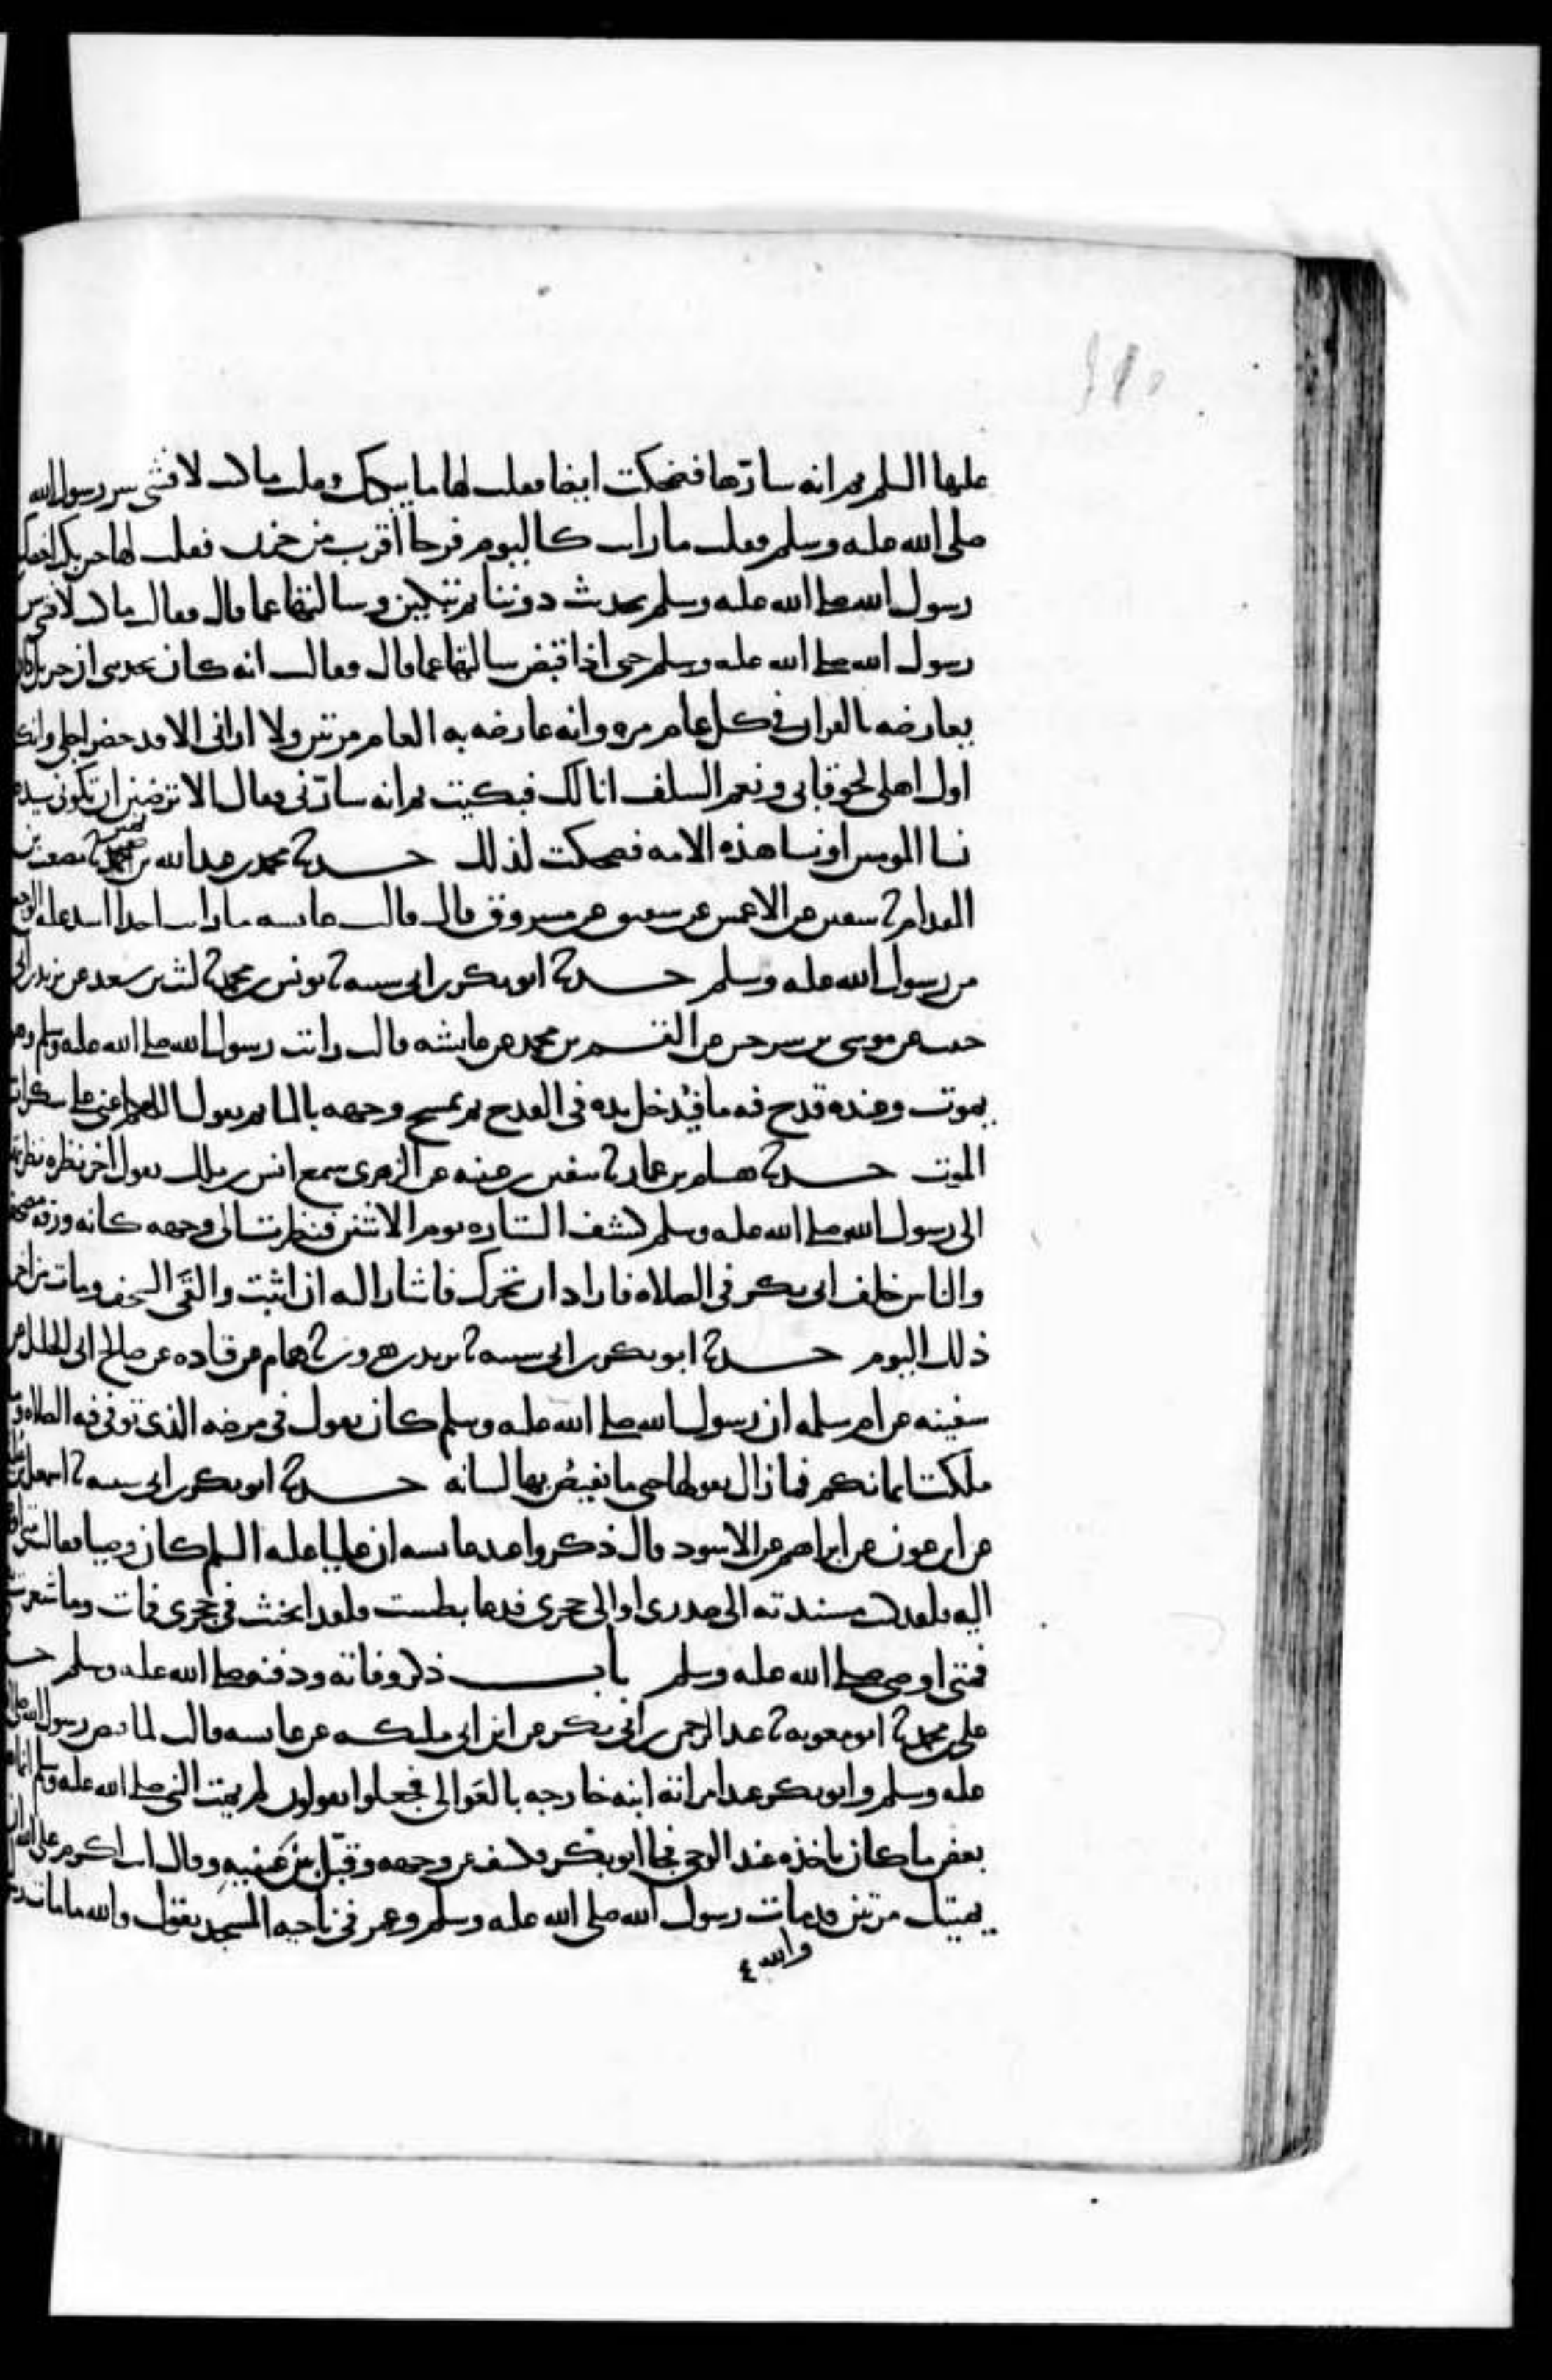 عليها السلم ثم انه سارّها فضحكت ايضا فقلت لها ما يبكيك وقالت ما كنت لافشي سر رسول الله
صلى الله عليه وسلم فقلت ما رايت كاليوم فرحا اقرب من حزن فقلت لها حين بكت اخصك
رسول الله صلى الله عليه وسلم بحديث دوننا ثم تبكين وسالتها عما قال فقالت ما كنت لافشي سر
رسول الله صلى الله عليه وسلم حتى اذا قبض سالتها عما قال فقالت انه كان يحدثني ان جبريل كان
يعارضه بالقران في كل عام مره وانه عارضه به العام مرتين ولا اراني الا قد حضر اجلي وانك
اول اهلي لحوقا بي ونعم السلف انا لك فبكيت ثم انه سارّني فقال الا ترضين ان تكوني سيده
نسا المومنين او نسا هذه الامه فضحكت لذلك حدثنا محمد بن عبد الله بن نمير ثنا مصعب بن
المقدام ثنا سفين عن الاعمش عن شقيق عن مسروق قال قالت عايشه ما رايت احدا اشد عليه الوجع
من رسول الله عليه وسلم حدثنا ابو بكر بن ابي شيبه ثنا يونس بن محمد ثنا ليث بن سعد عن يزيد بن ابي
حبيب عن موسى بن سرجس عن القسم بن محمد عن عايشه قالت رايت رسول الله صلى الله عليه وسلم وهو
يموت وعنده قدح فيه ما فيُدخل يده في القدح ثم يمسح وجهه بالما ثم يقول اللهم اعني على سكرات
الموت حدثنا هشام بن عمار ثنا سفين بن عيينه عن الزهري سمع انس بن ملك يقول اخر نظره نظرتها
الى رسول الله صلى الله عليه وسلم كشف الستاره يوم الاثنين فنظرت الى وجهه كانه ورقه مصحف
والناس خلف ابي بكر في الصلاه فاراد ان يتحرك فاشار اليه ان اثبت والقى السجف ومات من اخر
ذلك اليوم حدثنا ابو بكر بن ابي شيبه ثنا يزيد بن هرون ثنا همام عن قتاده عن صالح ابي الخليل عن
سفينه عن ام سلمه ان رسول الله صلى الله عليه وسلم كان يقول في مرضه الذي توفي فيه الصلاه وما
ملكت ايمانكم فما زال يقولها حتى ما يفيض بها لسانه حدثنا ابو بكر بن ابي شيبه ثنا اسمعيل بن
عن ابن عون عن ابراهيم عن الاسود قال ذكروا عند عايشه ان عليا عليه السلم كان وصيا فقالت متى اوصى
اليه فلقد كنت مسندته الى صدري او الى حجري فدعا بطست فلقد انخنث في حجري فمات وما شعرت
فمتى اوصى صلى الله عليه وسلم باب ذكر وفاته ودفنه صلى الله عليه وسلم
علي بن محمد ثنا ابو معويه ثنا عبد الرحمن بن ابي بكر عن ابن ابي مليكه عن عايشه قالت لما قبض رسول الله صلى الله
عليه وسلم وابو بكر عند امراته ابنه خارجه بالعَوالي فجعلوا يقولون لم يمت النبي صلى الله عليه وسلم انما هو
بعض ما كان ياخذه عند الوحي فجا ابو بكر فكشف عن وجهه وقبّل بين عينيه وقال انت اكرم على الله ان
يميتك مرتين قد مات رسول الله صلى الله عليه وسلم وعمر في ناحيه المسجد يقول والله ما مات
والله